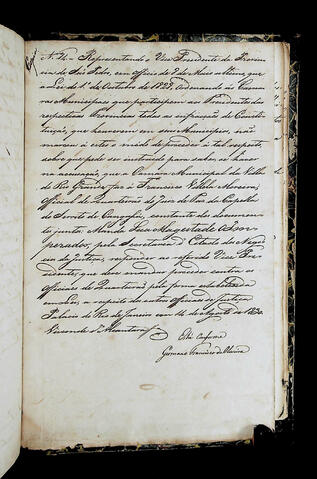 N. 14 - Representando o Vice Presidente da Provin
cia de São Pedro, em officio de 7 de Maio ultimo, que
a Lei do 1º de Outubro de 1828, ordenando ás Cama
ras Municipaes que participem aos Presidentes das
respectivas Provincias todas as infracções de Consti
tuição, que houverem em seus Municipios, não
marcou á este o modo de proceder á tal respeito,
sobre que pede ser instruido para saber se haver
na accusação, que a Camara Municipal da Villa
do Rio Grande faz a Francisco Moreira,
Official de Quarteirão do Juiz de Paz da Capella
do Serrito de Cangussú, constante dos documen
tos juntos: Manda Sua Magestade o Im
perador, pela Secretaria d'Estado dos Nego
cios da Justiça, responder ao referido Vice Pre
sidente, que deve mandar proceder contra os
Officiaes de Quarteirão pela forma estabelecida
em Lei, a respeito dos outros officiaes de Justiça.
Palacio do Rio de Janeiro em 14 de Agosto de 1830.
Visconde d'Alcantara
Está conforme
Germano Francisco de Oliveira